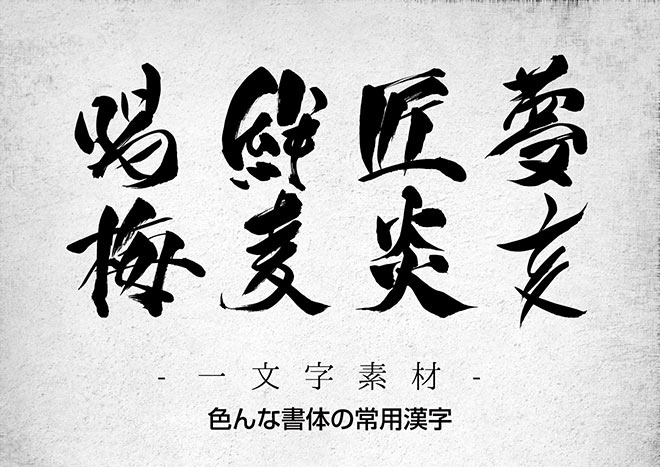 匠 夢
梅 麦 炎 亥
- 一文字素材 -
色んな書体の常用漢字